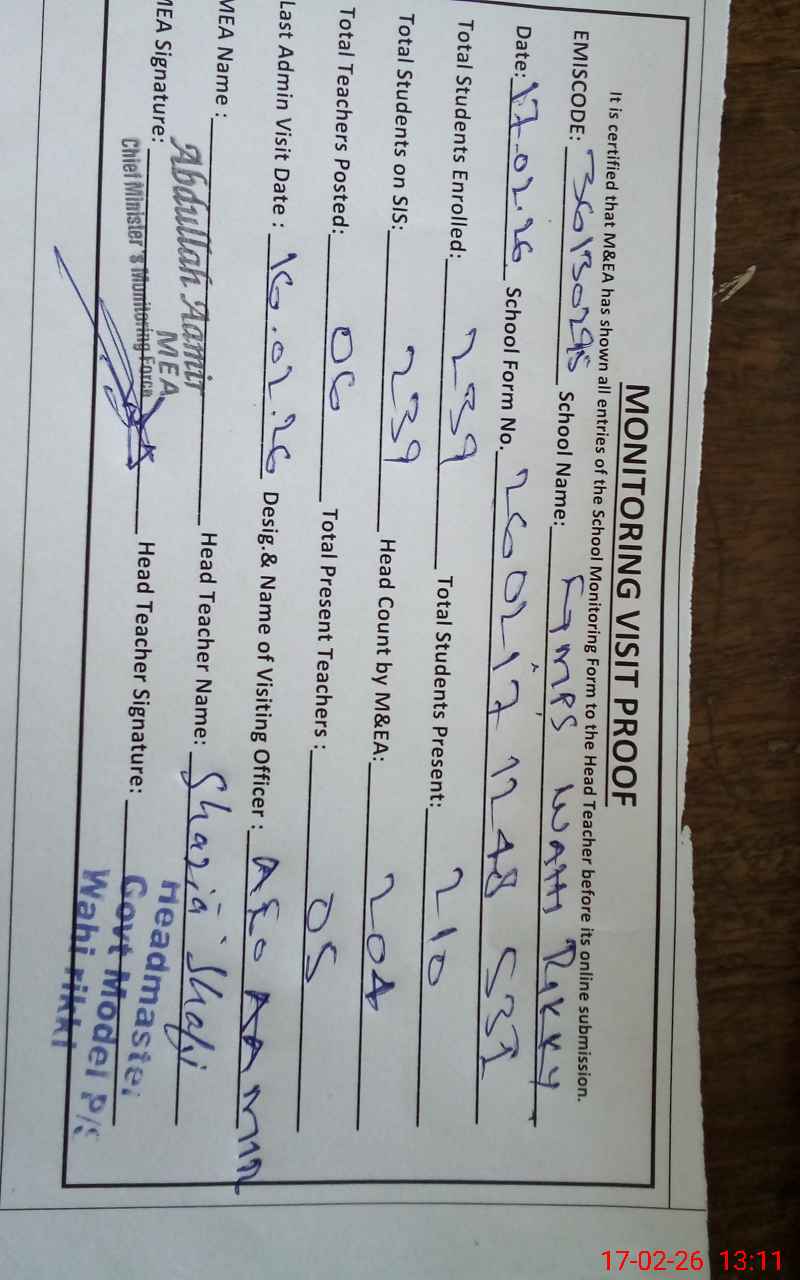 MONITORING VISIT PROOF
It is certified that M&EA has shown all entries of the School Monitoring Form to the Head Teacher before its online submission.
EMISCODE: 36130295 School Name: GMPS WAHI RIKKY
Date: 17.02.26 School Form No. 260217 1248 531
Total Students Enrolled: 239 Total Students Present: 210
Total Students on SIS: 239 Head Count by M&EA: 204
Total Teachers Posted: 06 Total Present Teachers : 05
Last Admin Visit Date : 16.02.26 Desig.& Name of Visiting Officer : AEO AAMIR
MEA Name : Abdullah Aamir Head Teacher Name: Shazia Shafi
MEA
Chief Minister's Monitoring Force
MEA Signature: Head Teacher Signature:
Headmaster
Govt Model P/S
Wahi rikki
17-02-26 13:11